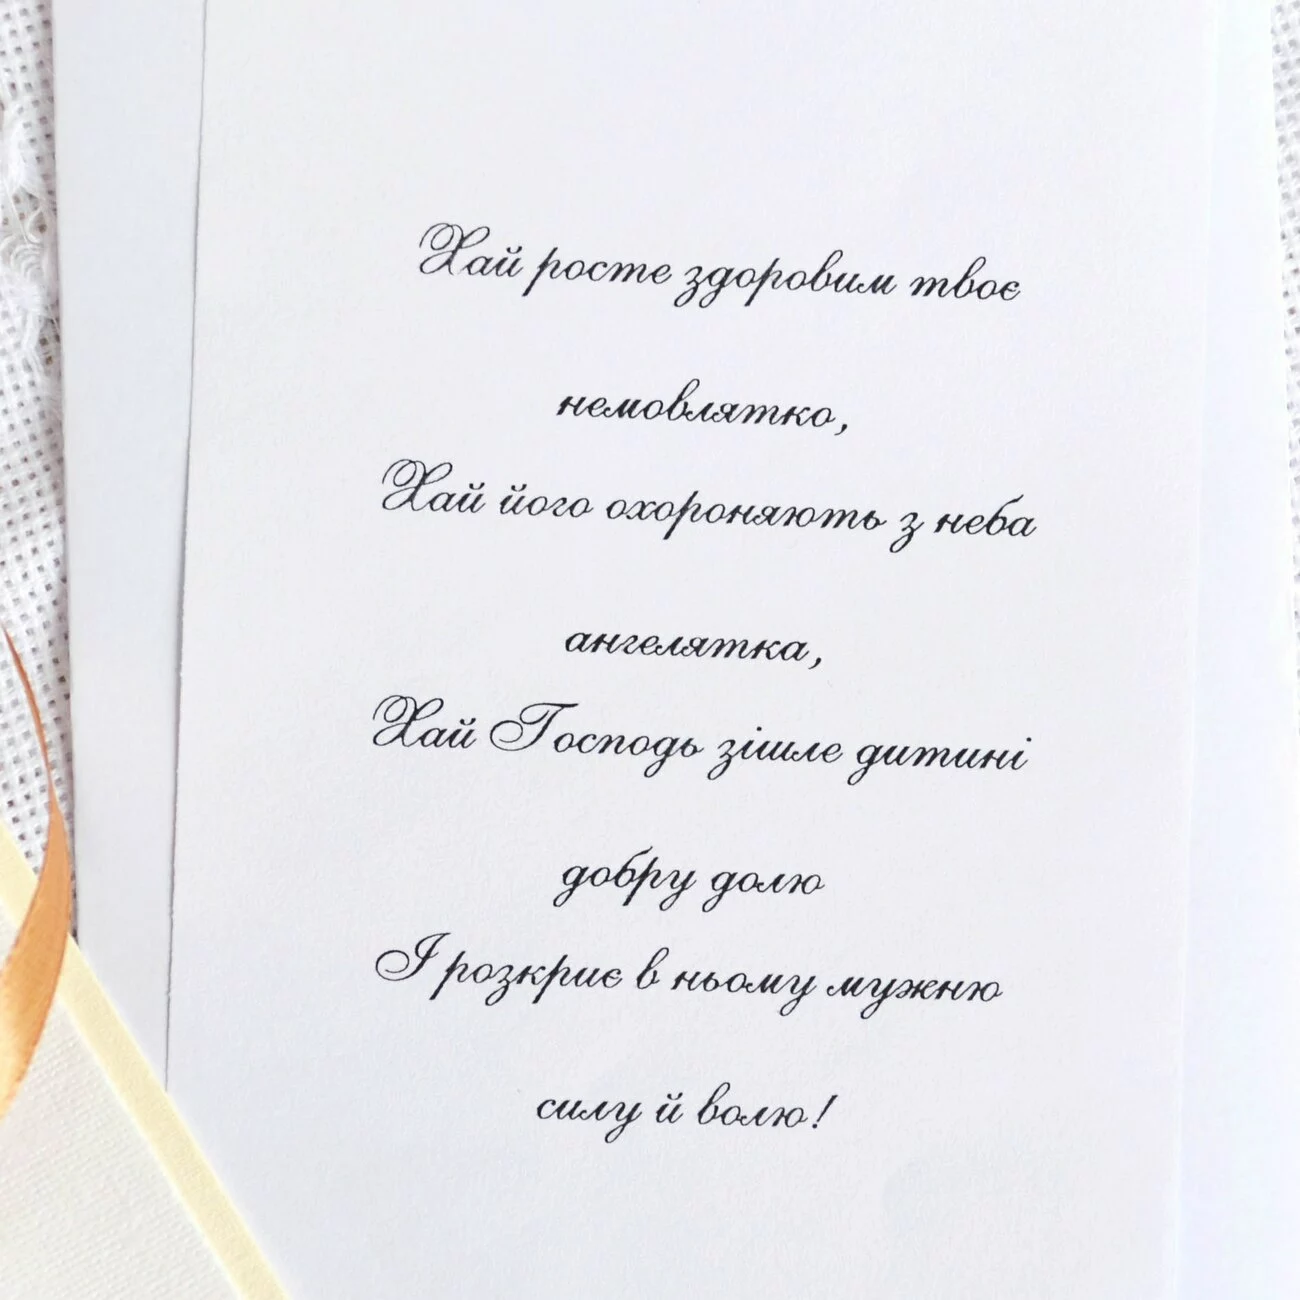 Хай росте здоровим твоє
немовлятко,
Хай його охороняють з неба
ангелятка,
Хай Господь зішле дитині
добру долю
І розкриє в ньому мужню
силу й волю!